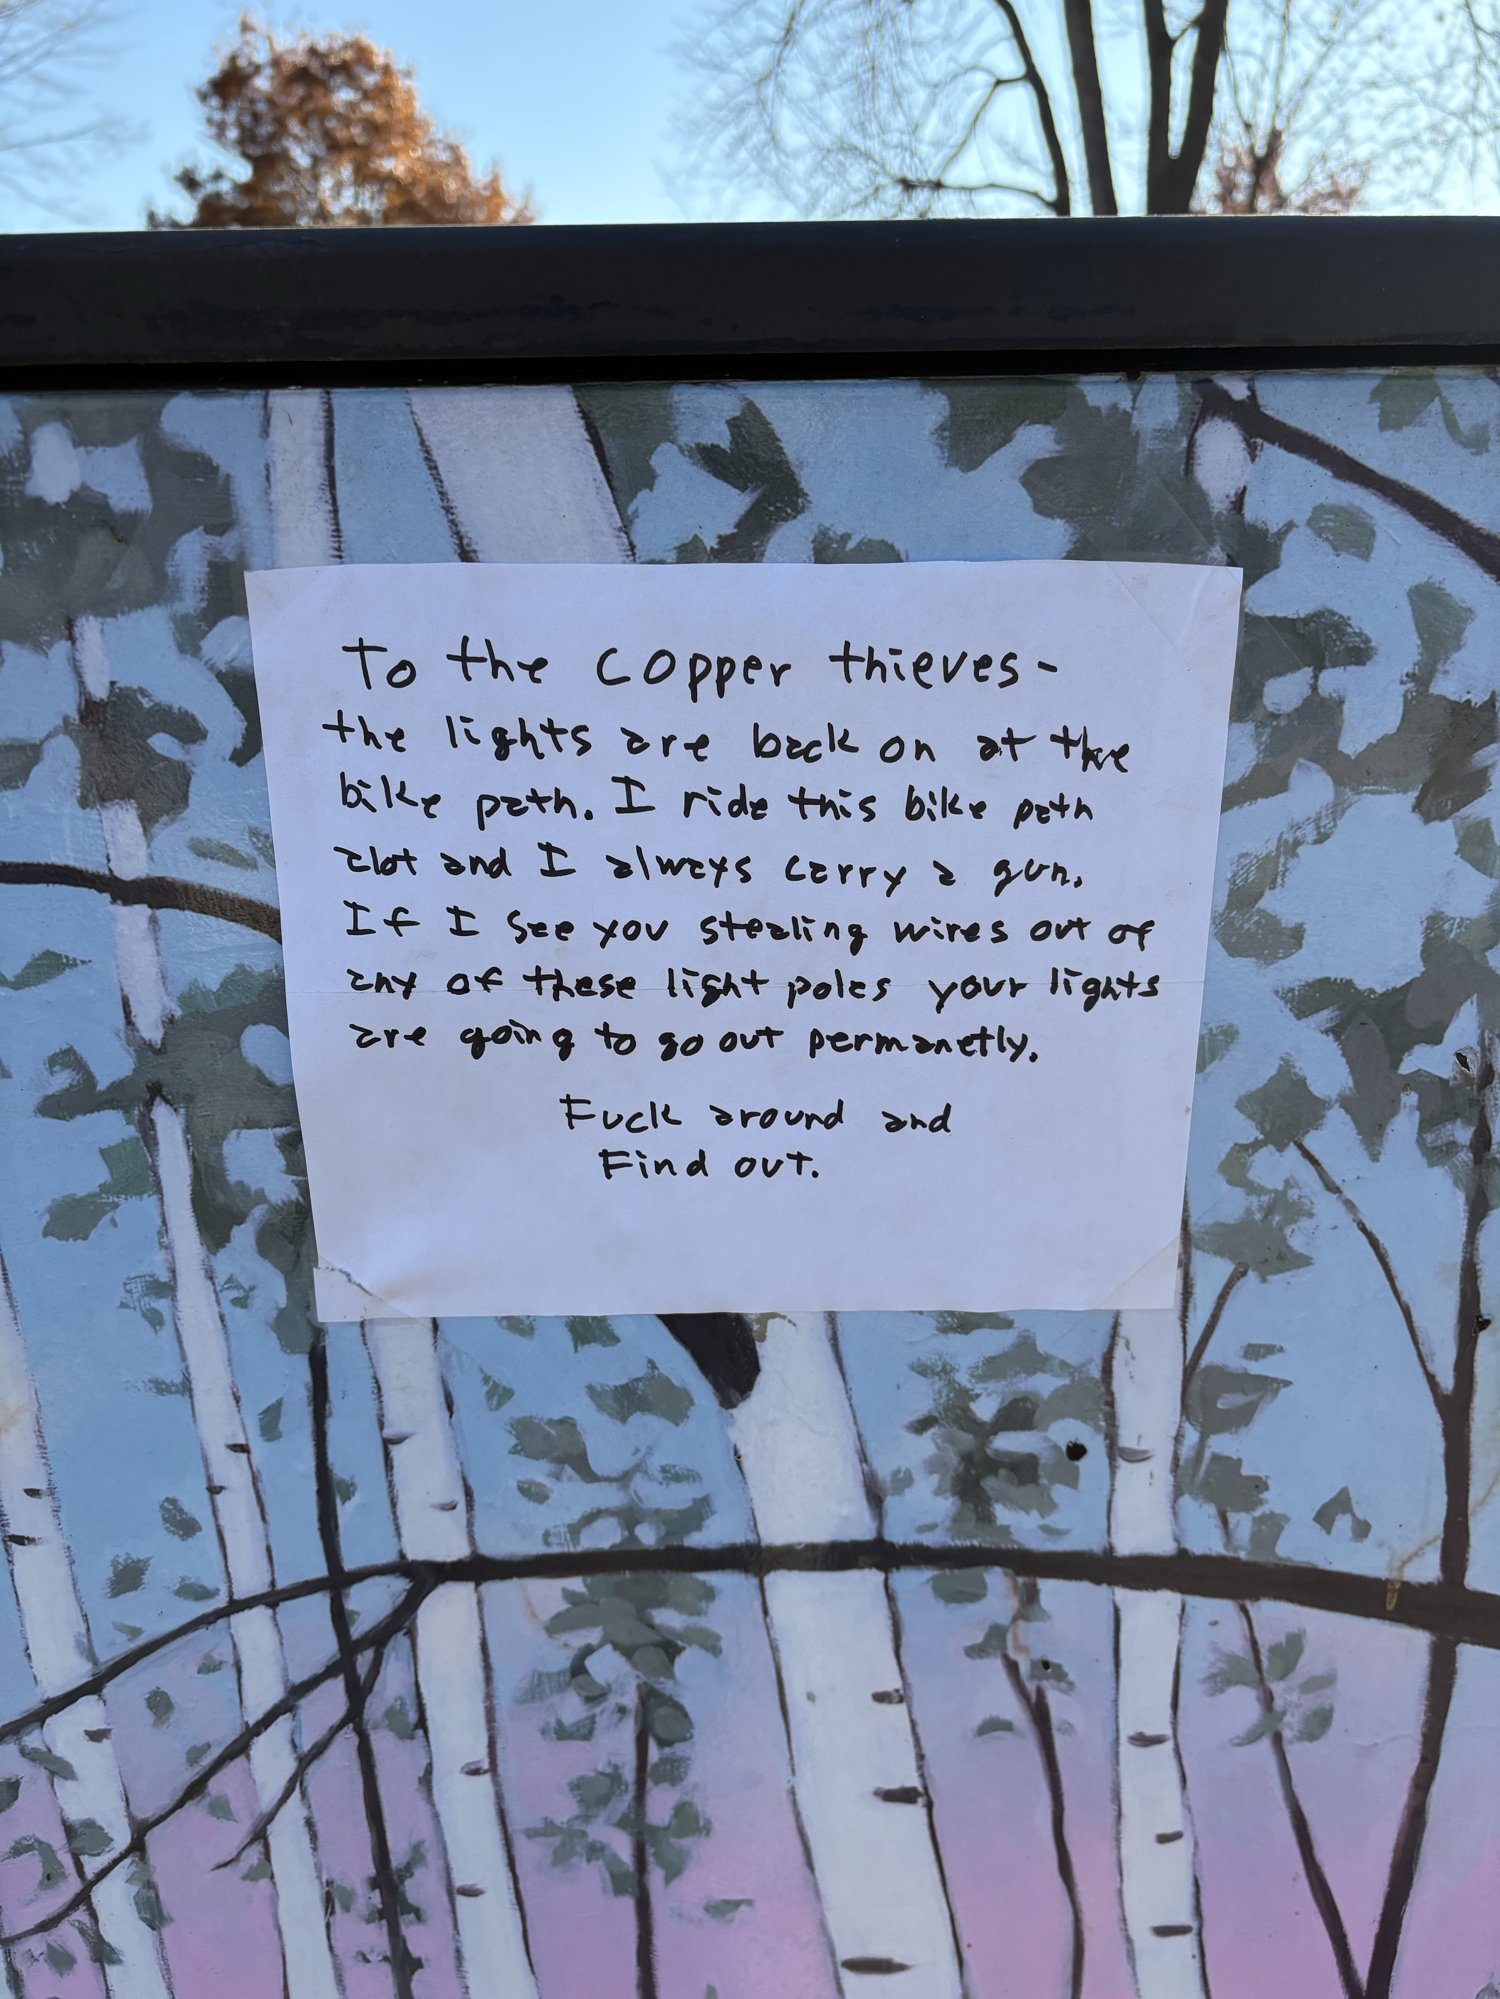 To the copper thieves-
the lights are back on at the
bike path. I ride this bike path
alot and I always carry a gun.
If I see you stealing wires out of
any of these light poles your lights
are going to go out permanetly.
Fuck around and
Find out.